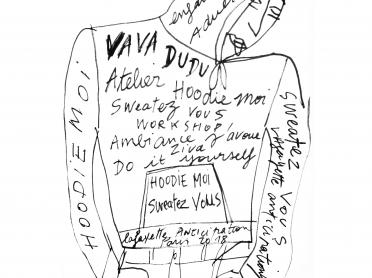 enfan
Adul
VAVA DUDU
Atelier
Hoodie moi
Sweatez Vous
WORKSHOP!
Ambiance javoue
Ziva
Do it yourself
HOODIE MOI
Sweatez Vous
Lafayette Anticipation
Paris 2018
HOODIE MOI
Sweatez Vous
Lafayette anticipation